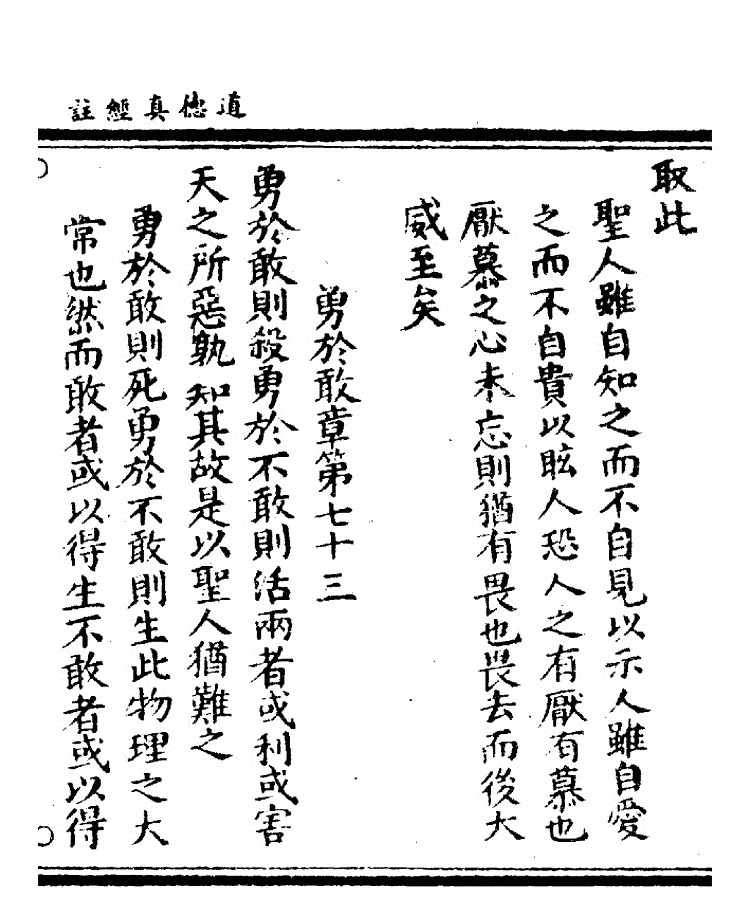 道德真經註
取此
聖人雖自知之而不自見以示人雖自愛
之而不自貴以眩人恐人之有厭有慕也
厭慕之心未忘則猶有畏也畏去而後大
威至矣
勇於敢章第七十三
勇於敢則殺勇於不敢則活兩者或利或害
天之所惡孰知其故是以聖人猶難之
勇於敢則死勇於不敢則生此物理之大
常也然而敢者或以得生不敢者或以得